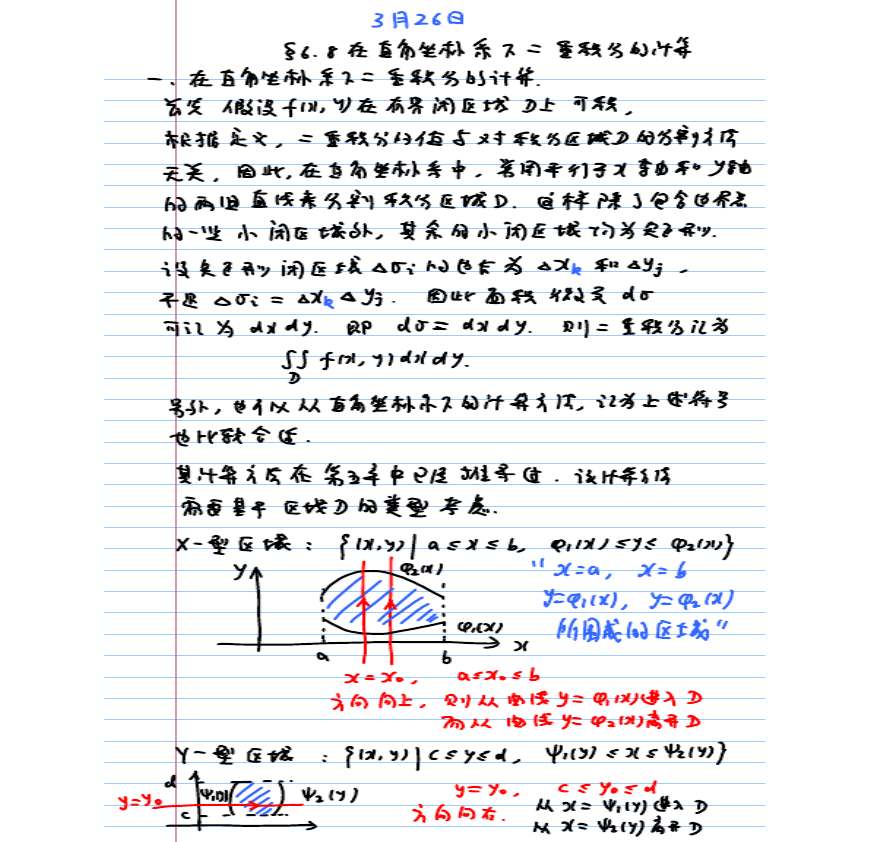 3月26日
§6.8 在直角坐标系下二重积分的计算
一、在直角坐标系下二重积分的计算.
首先 假设f(x, y)在有界闭区域 D上 可积,
根据定义, 二重积分的值与对积分区域D的分割方法
无关, 因此, 在直角坐标系中, 常用平行于x轴和y轴
的两组直线来分割积分区域D. 这样除了包含边界点
的一些小闭区域外, 其余的小闭区域均为矩形.
设矩形闭区域 Δσi 的边长为 Δxk 和 Δyj ,
于是 Δσi = Δxk Δyj. 因此面积微元 dσ
可记为 dxdy. 即 dσ = dxdy. 则二重积分记为
∬ f(x, y)dxdy.
D
另外, 也可以从直角坐标系下的计算方法, 记为上述符号
也比较合适.
其计算方法在第五章中已经推导过. 该计算方法
需要基于区域D的类型考虑.
X-型区域: {(x,y) | a ≤ x ≤ b, φ1(x) ≤ y ≤ φ2(x)}
y φ2(x) " x=a, x=b
y=φ1(x), y=φ2(x)
φ1(x) 所围成的区域"
a b x
x=x0, a≤x0≤b
方向向上, 则从曲线 y=φ1(x)进入D
而从曲线 y=φ2(x)离开D
Y-型区域: {(x,y) | c≤y≤d, ψ1(y) ≤ x ≤ ψ2(y)}
d ψ1(y) ψ2(y) y=y0, c≤y0≤d
y=y0 方向向右. 从 x=ψ1(y)进入D
c 从 x=ψ2(y)离开D